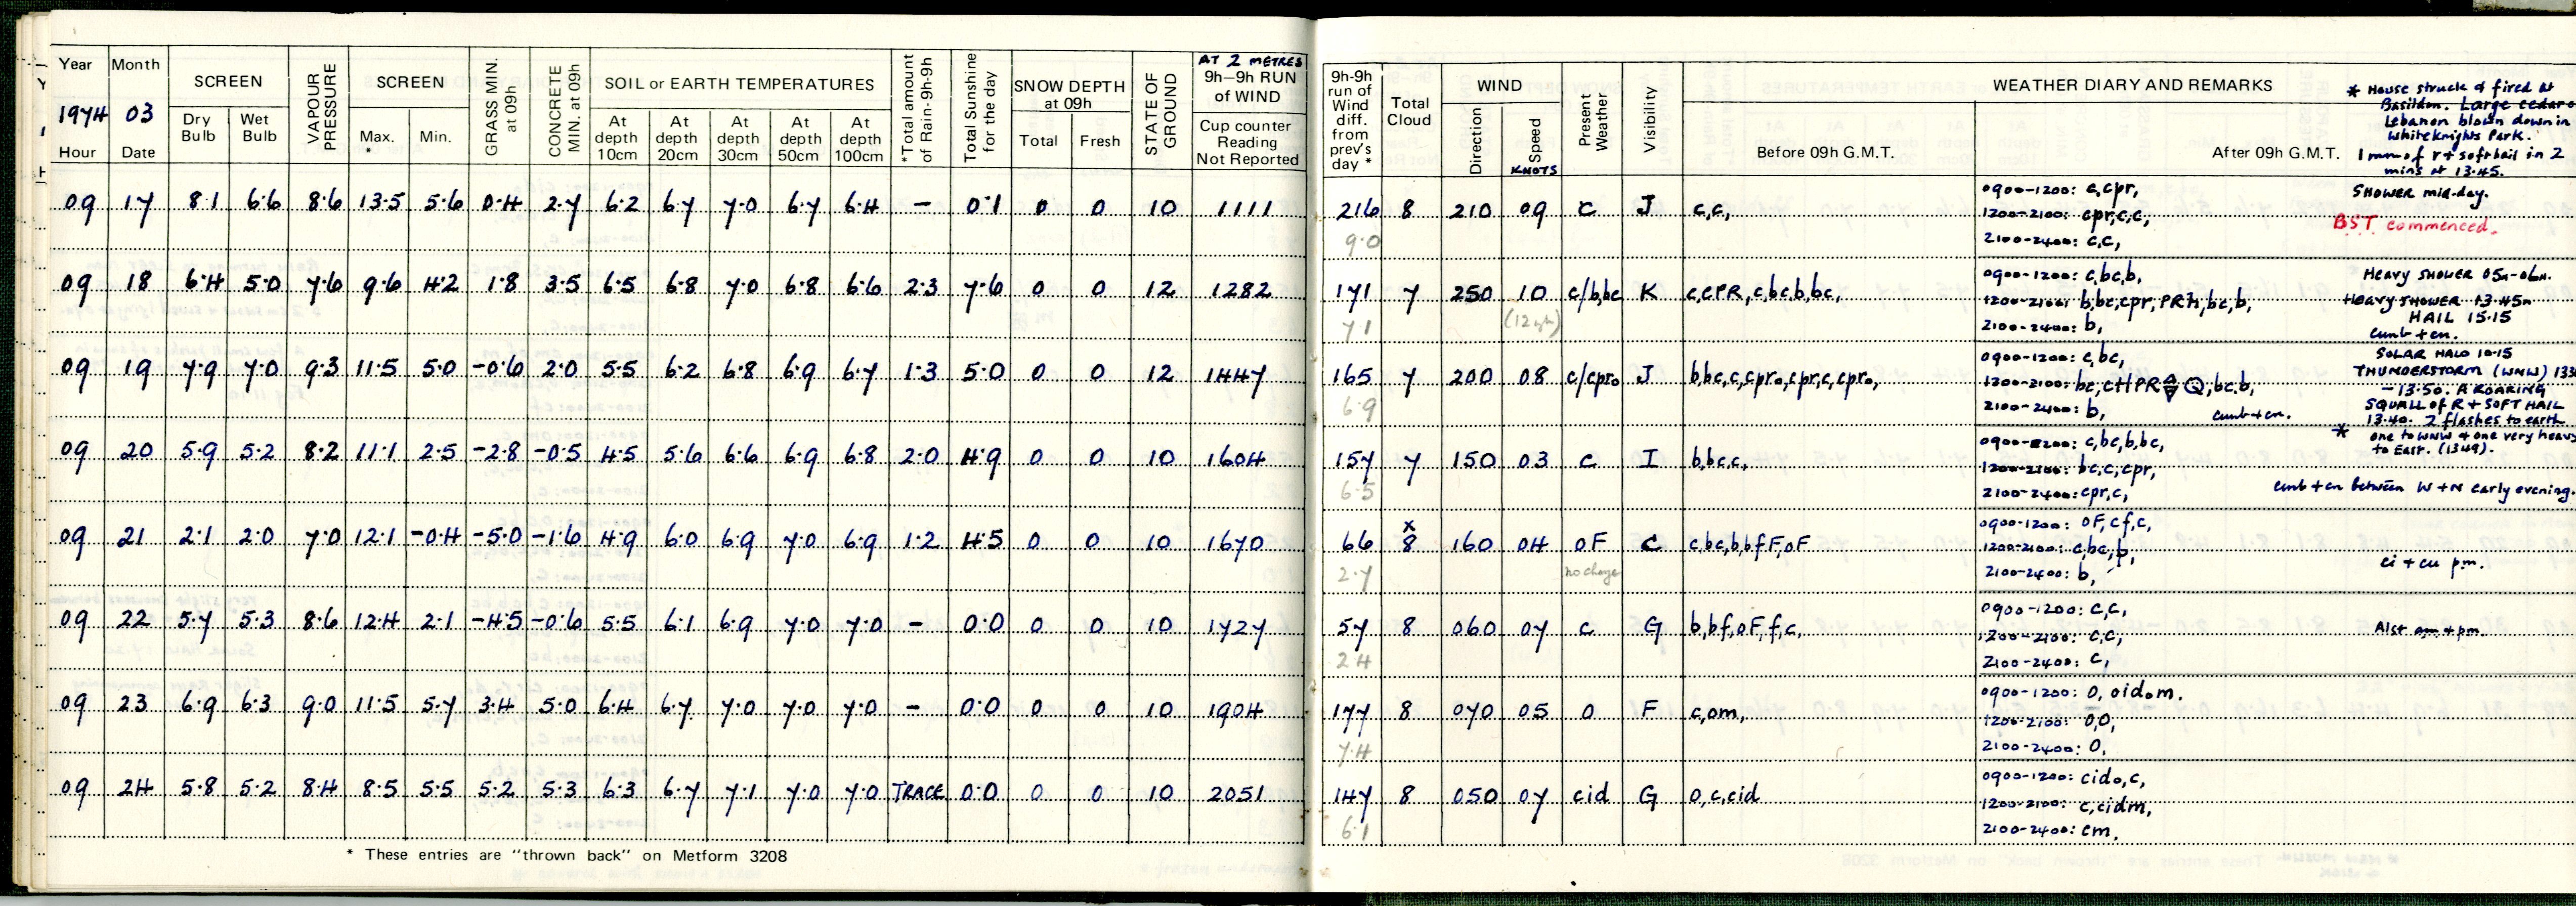 Year Month SCREEN VAPOUR PRESSURE SCREEN GRASS MIN. at 09h CONCRETE MIN. at 09h SOIL or EARTH TEMPERATURES *Total amount of Rain-9h-9h Total Sunshine for the day SNOW DEPTH at 09h STATE OF GROUND AT 2 METRES 9h–9h RUN of WIND
1974 03 Dry Bulb Wet Bulb Max. * Min. At depth 10cm At depth 20cm At depth 30cm At depth 50cm At depth 100cm Total Fresh Cup counter Reading Not Reported
Hour Date
09 17 8.1 6.6 8.6 13.5 5.6 0.4 2.7 6.2 6.7 7.0 6.7 6.4 – 0.1 0 0 10 1111
09 18 6.4 5.0 7.6 9.6 4.2 1.8 3.5 6.5 6.8 7.0 6.8 6.6 2.3 7.6 0 0 12 1282
09 19 7.9 7.0 9.3 11.5 5.0 -0.6 2.0 5.5 6.2 6.8 6.9 6.7 1.3 5.0 0 0 12 1447
09 20 5.9 5.2 8.2 11.1 2.5 -2.8 -0.5 4.5 5.6 6.6 6.9 6.8 2.0 4.9 0 0 10 1604
09 21 2.1 2.0 7.0 12.1 -0.4 -5.0 -1.6 4.9 6.0 6.9 7.0 6.9 1.2 4.5 0 0 10 1670
09 22 5.7 5.3 8.6 12.4 2.1 -4.5 -0.6 5.5 6.1 6.9 7.0 7.0 – 0.0 0 0 10 1727
09 23 6.9 6.3 9.0 11.5 5.7 3.4 5.0 6.4 6.7 7.0 7.0 7.0 – 0.0 0 0 10 1904
09 24 5.8 5.2 8.4 8.5 5.5 5.2 5.3 6.3 6.7 7.1 7.0 7.0 TRACE 0.0 0 0 10 2051
* These entries are "thrown back" on Metform 3208
9h-9h run of Wind diff. from prev's day * Total Cloud WIND Direction Speed KNOTS Present Weather Visibility WEATHER DIARY AND REMARKS
Before 09h G.M.T. After 09h G.M.T.
* House struck & fired at
Basildon. Large cedar o
Lebanon blown down in
Whiteknights Park.
1mm of r + soft hail in 2
mins at 13.45.
216 8 210 09 c J c,c,
9.0
0900-1200: c,cpr,
1200-2100: cpr,c,c,
2100-2400: c,c,
SHOWER mid-day.
BST commenced.
171 7 250 10 c/b,bc K c,cPR,c,bc,b,bc,
7.1
0900-1200: c,bc,b,
1200-2100: b,bc,cpr,PRh,bc,b,
2100-2400: b,
Heavy SHOWER 05h-06h.
Heavy SHOWER 13.45h
HAIL 15.15
cumb + cn.
165 7 200 08 c/cpro J b,bc,c,cpro,cpr,c,cpro,
6.9
0900-1200: c,bc,
2100-2400: b,
cumb + cn.
SOLAR HALO 10.15
THUNDERSTORM (WNW) 133
– 13.50. A ROARING
SQUALL of R + SOFT HAIL
13.40. 2 flashes to earth
* one to WNW + one very heavy
to East. (1349).
157 7 150 03 c I b,bc,c,
6.5
0900-1200: c,bc,b,bc,
1200-2100: bc,c,cpr,
2100-2400: cpr,c,
cumb + cn between W + N early evening.
66 x 8 160 04 oF C c,bc,b,bfF,oF
2.7 no change
0900-1200: oF,cf,c,
1200-2100: c,bc,b,
2100-2400: b,
ci + cu pm.
57 8 060 07 c G b,bf,oF,f,c,
2.4
0900-1200: c,c,
1200-2100: c,c,
2100-2400: c,
Alst am + pm.
177 8 070 05 o F c,om,
7.4
0900-1200: o, oidom.
1200-2100: o,o,
2100-2400: o,
147 8 050 07 cid G o,c,cid
6.1
0900-1200: cido,c,
1200-2100: c,cidm,
2100-2400: cm,